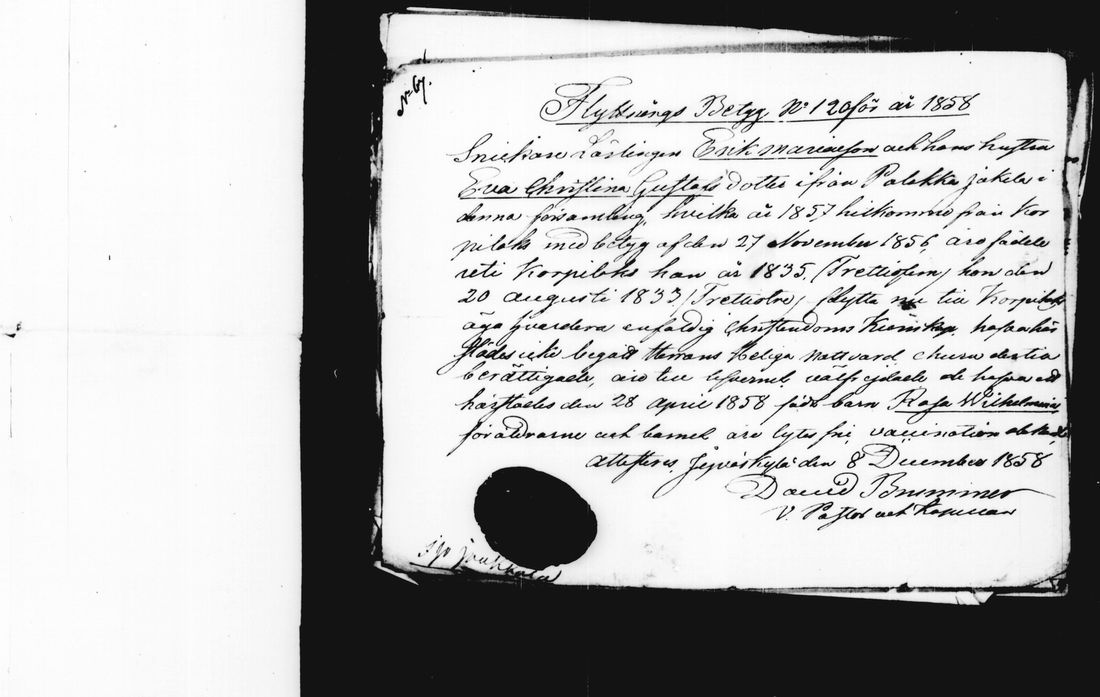 No 67.
Flyttnings Betyg No 120 för år 1858
Snickare Lärlingen Erik Mariaeson och hans hustru
Eva Christina Gustafs dotter ifrån Palokka Jakola i
denna församling, hvilka år 1857 hitkommo från Kor
pilaks med betyg af den 27 November 1856, äro födde
uti Korpilaks han år 1835 (Trettiofem) hon den
20 Augusti 1833 (Trettiotre) flytta nu till Korpilaks
äga hvardera enfaldig Christendoms Kunskap, hafva här
städes icke begått Herrans Heliga Nattvard ehuru dertill
berättigade, äro till lefvernet välfrejdade de hafva ett
härstädes den 28 April 1858 födt barn Rosa Wilhelmina
föräldrarne och barnet äro lytes fri, vaccination
attesteras, Jyväskylä den 8 December 1858
David Brummer
V. Pastor och Kapellan